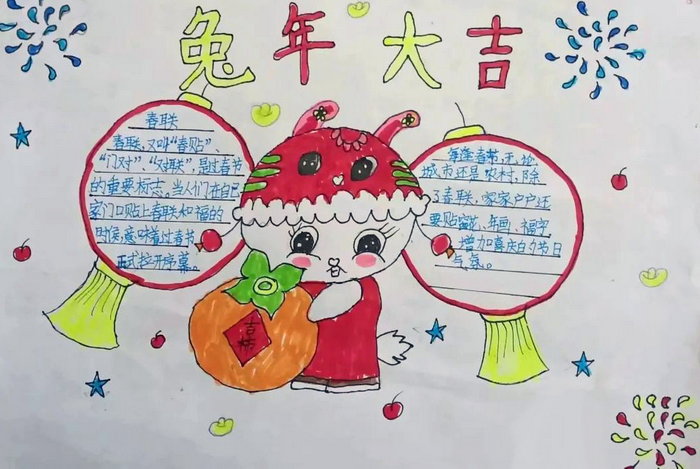 兔年大吉
春联
春联，又叫“春贴”、
“门对”、“对联”，是过春节
的重要标志，当人们在自己
家门口贴上春联和福的
时候，意味着过春节
正式拉开序幕。
每逢春节，无论
城市还是农村，除
了春联，家家户户还
要贴窗花、年画、福字
，增加喜庆的节日
气氛。
吉